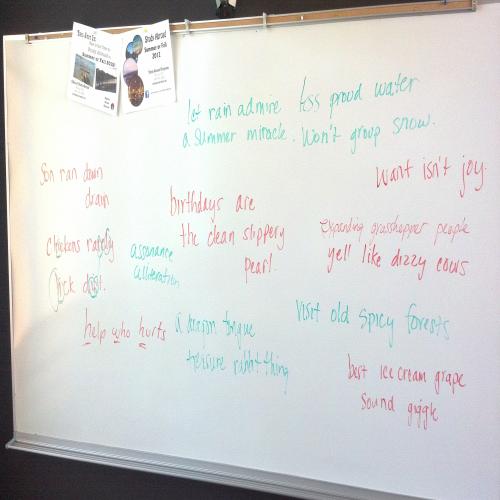 Study Abroad
Summer or Fall
2012
let rain admire less proud water
a summer miracle. Won't group snow.
want isn't joy.
Son ran down
drain
birthdays are
the clean slippery
pearl.
expanding grasshopper people
yell like dizzy cows
chickens rapidly
kick dust.
assonance
alliteration
help who hurts
a dragon tongue
treasure rabbit thing
Visit old spicy forests
best ice cream grape
sound giggle